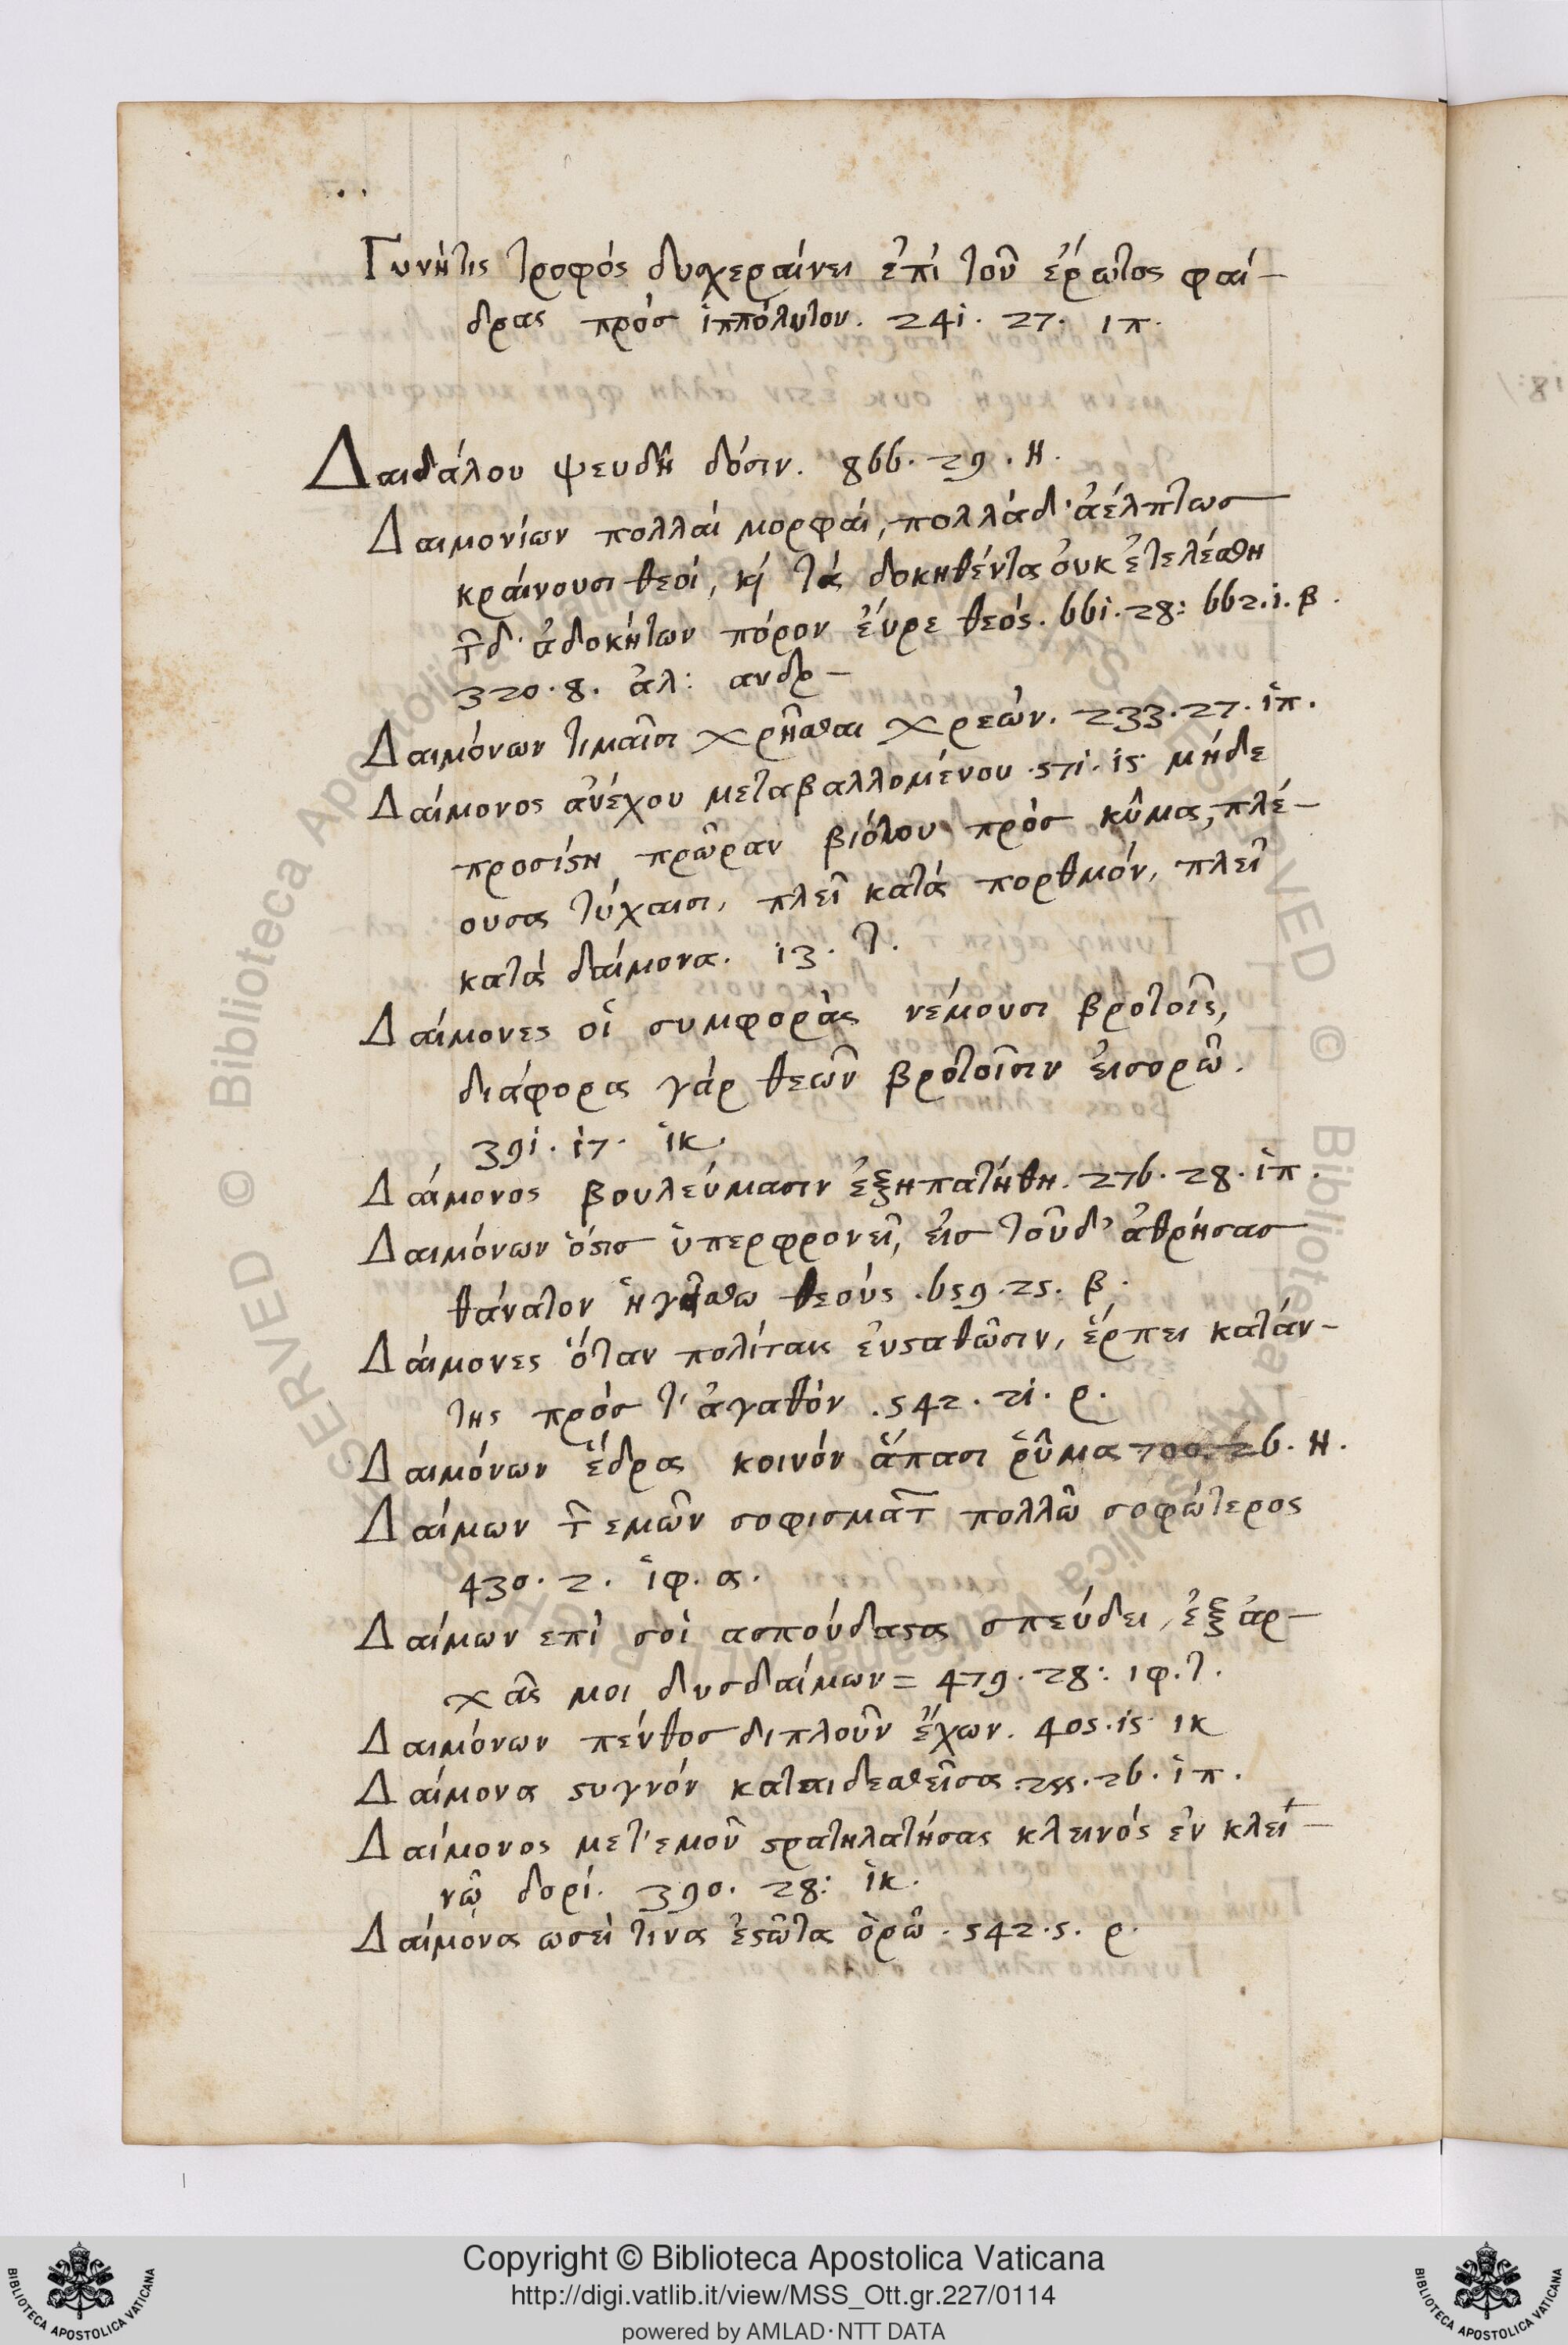 Γυνή τις τροφός δυσχεραίνει ἐπί τοῦ ἐρώτος φαί-
δρας πρὸσ ἱππόλυτον. 241. 27. ιπ.
Δαιδάλου ψευδῆ δόσιν. 866. 29. Η.
Δαιμονίων πολλαί μορφαί, πολλά δ' ἀέλπτωσ
κράινουσι θεοί, κỳ τά δοκηθέντα ὀυκ ἐτελέσθη
τ͂ δ' ἀδοκήτων πόρον ἑύρε θεός. 661. 28: 662. 1. β.
320. 8. ἀλ: ανδρ-
Δαιμόνων τιμαῖσι χρῆσθαι χρεών. 233. 27. ἱπ.
Δαίμονος ἀνέχου μεταβαλλομένου. 571. 15 μήδε
προσίϛη πρῶραν βιότου πρὸσ κῦμα, πλέ-
ουσα τύχαισι, πλεῖ κατά πορθμόν, πλεῖ
κατά δαίμονα. 13. τ.
Δαίμονες οἱ συμφορὰς νέμουσι βροτοῖς,
διάφορα γάρ θεῶν βροτοῖσιν ἐισορῶ.
391. 17. ἱκ.
Δαίμονος βουλεύμασιν ἐξηπατήθη. 276. 28. ἱπ.
Δαιμόνων ὅϛισ ὑπερφρονεῖ, ἐισ τοῦδ' ἀθρήσασ
θάνατον ἡγείσθω θεούς. 659. 25. β.
Δάιμονες ὅταν πολίταις ἐυϛαθῶσιν, ἕρπει κατάν-
της πρὸσ τ' ἀγαθόν. 542. 21. ρ.
Δαιμόνων ἕδρα κοινόν ἅπασι ῥῦμα 700. 26. Η.
Δαίμων τ͂ εμῶν σοφισμάτ͂ πολλῶ σοφώτερος
430. 2. ἱφ. α.
Δαίμων επὶ σοὶ ασπούδαϛα σπεύδει, ἐξ ἀρ-
χᾶς μοι δυσδαίμων = 479. 28: ιφ. τ.
Δαιμόνων πένθοσ διπλοῦν ἔχων. 405. 15 ικ
Δαίμονα ϛυγνόν καταιδεσθεῖσα: 255. 26. ἱπ.
Δαίμονος μετ' εμοῦ ϛρατηλατήσας κλεινός ἐν κλεί-
νῶ δορί. 390. 28: ἱκ.
Δαίμονα ωσεὶ τινα ἑϛῶτα ὁρῶ. 542. 5. ρ.
Copyright © Biblioteca Apostolica Vaticana
http://digi.vatlib.it/view/MSS_Ott.gr.227/0114
powered by AMLAD·NTT DATA